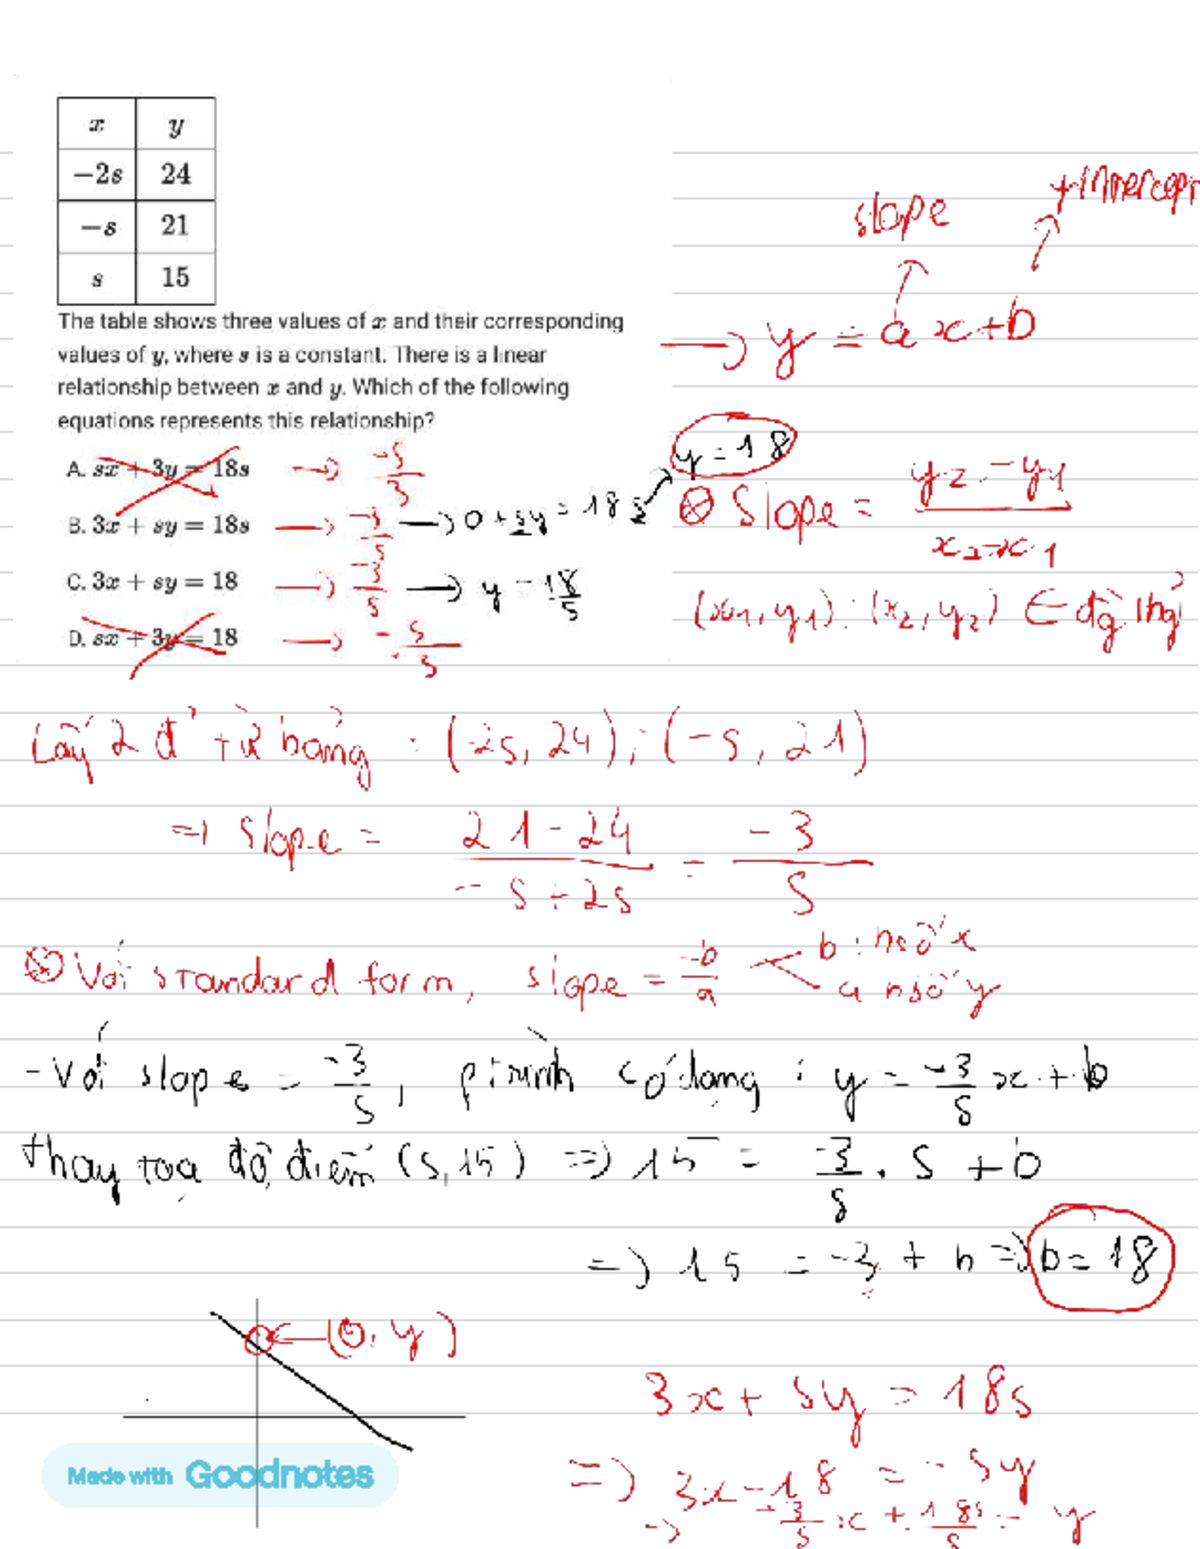 x y
−2s 24
−s 21
s 15
The table shows three values of x and their corresponding
values of y, where s is a constant. There is a linear
relationship between x and y. Which of the following
equations represents this relationship?
A. sx + 3y = 18s → -s/3
B. 3x + sy = 18s → -3/s → 0 + sy = 18s
C. 3x + sy = 18 → -3/s → y = 18/s
D. sx + 3y = 18 → -s/3
slope
→ y = ax+b
y = 18
⊗ Slope = y2 - y1 / x2 - x1
(x1, y1) ; (x2, y2) ∈ đồ thị
Lấy 2 đ' từ bảng : (-2s, 24) ; (-s, 21)
=> slope = 21 - 24 / -s + 2s = -3/s
⊗ Với standard form, slope = -b/a
b : hsố x
a hsố y
- Với slope = -3/s, ptrình có dạng : y = -3/s x + b
thay toạ độ điểm (s, 15) => 15 = -3/s . s + b
=> 15 = -3 + b => b = 18
(0, y)
3x + sy = 18s
=> 3x - 18 = - sy
-> -3/s x + 18s/s = y
Made with Goodnotes